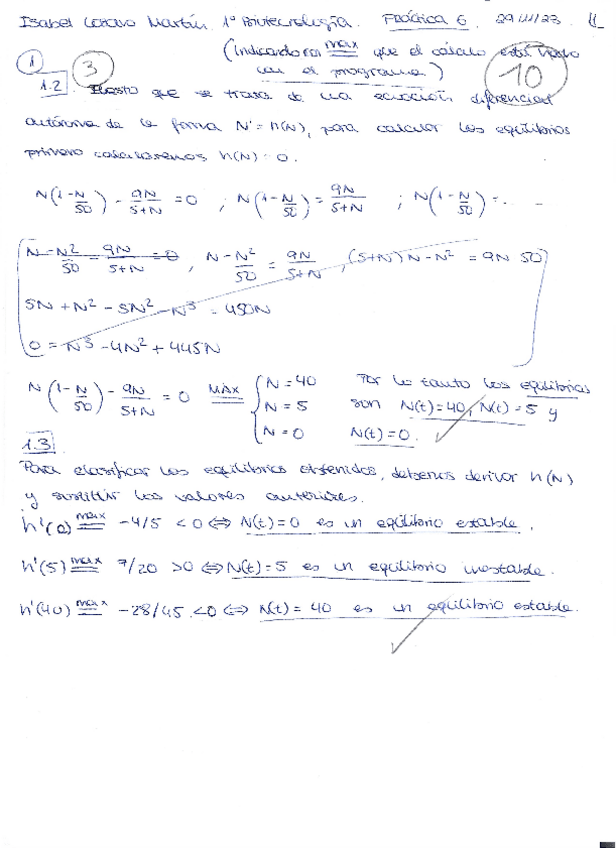 Isabel Martín. 1º Biotecnología. Práctica 6. 29/11/23
(Indicando con max que el cálculo está hecho
con el programa)
10
1
3
1.2. Puesto que se trata de una ecuación diferencial
autónoma de la forma N' = h(N), para calcular los equilibrios
primero calcularemos h(N) = 0.
N(1-N/50) - 9N/5+N = 0 ; N(1-N/50) = 9N/5+N ; N(1-N/50) = ...
N-N²/50 - 9N/5+N = 0 , N-N²/50 = 9N/5+N , (5+N)N-N² = 9N 50
5N + N² - 5N² - N³ = 450N
0 = N³ - 4N² + 445N
N(1-N/50) - 9N/5+N = 0 MAX { N = 40 Por lo tanto los equilibrios
N = 5 son N(t) = 40, N(t) = 5 y
N = 0 N(t) = 0.
1.3
Para clasificar los equilibrios obtenidos, debemos derivar h(N)
y sustituir los valores anteriores.
h'(0) max = -4/5 < 0 ⇔ N(t) = 0 es un equilibrio estable.
h'(5) max = 7/20 > 0 ⇔ N(t) = 5 es un equilibrio inestable.
h'(40) max = -28/45 < 0 ⇔ N(t) = 40 es un equilibrio estable.